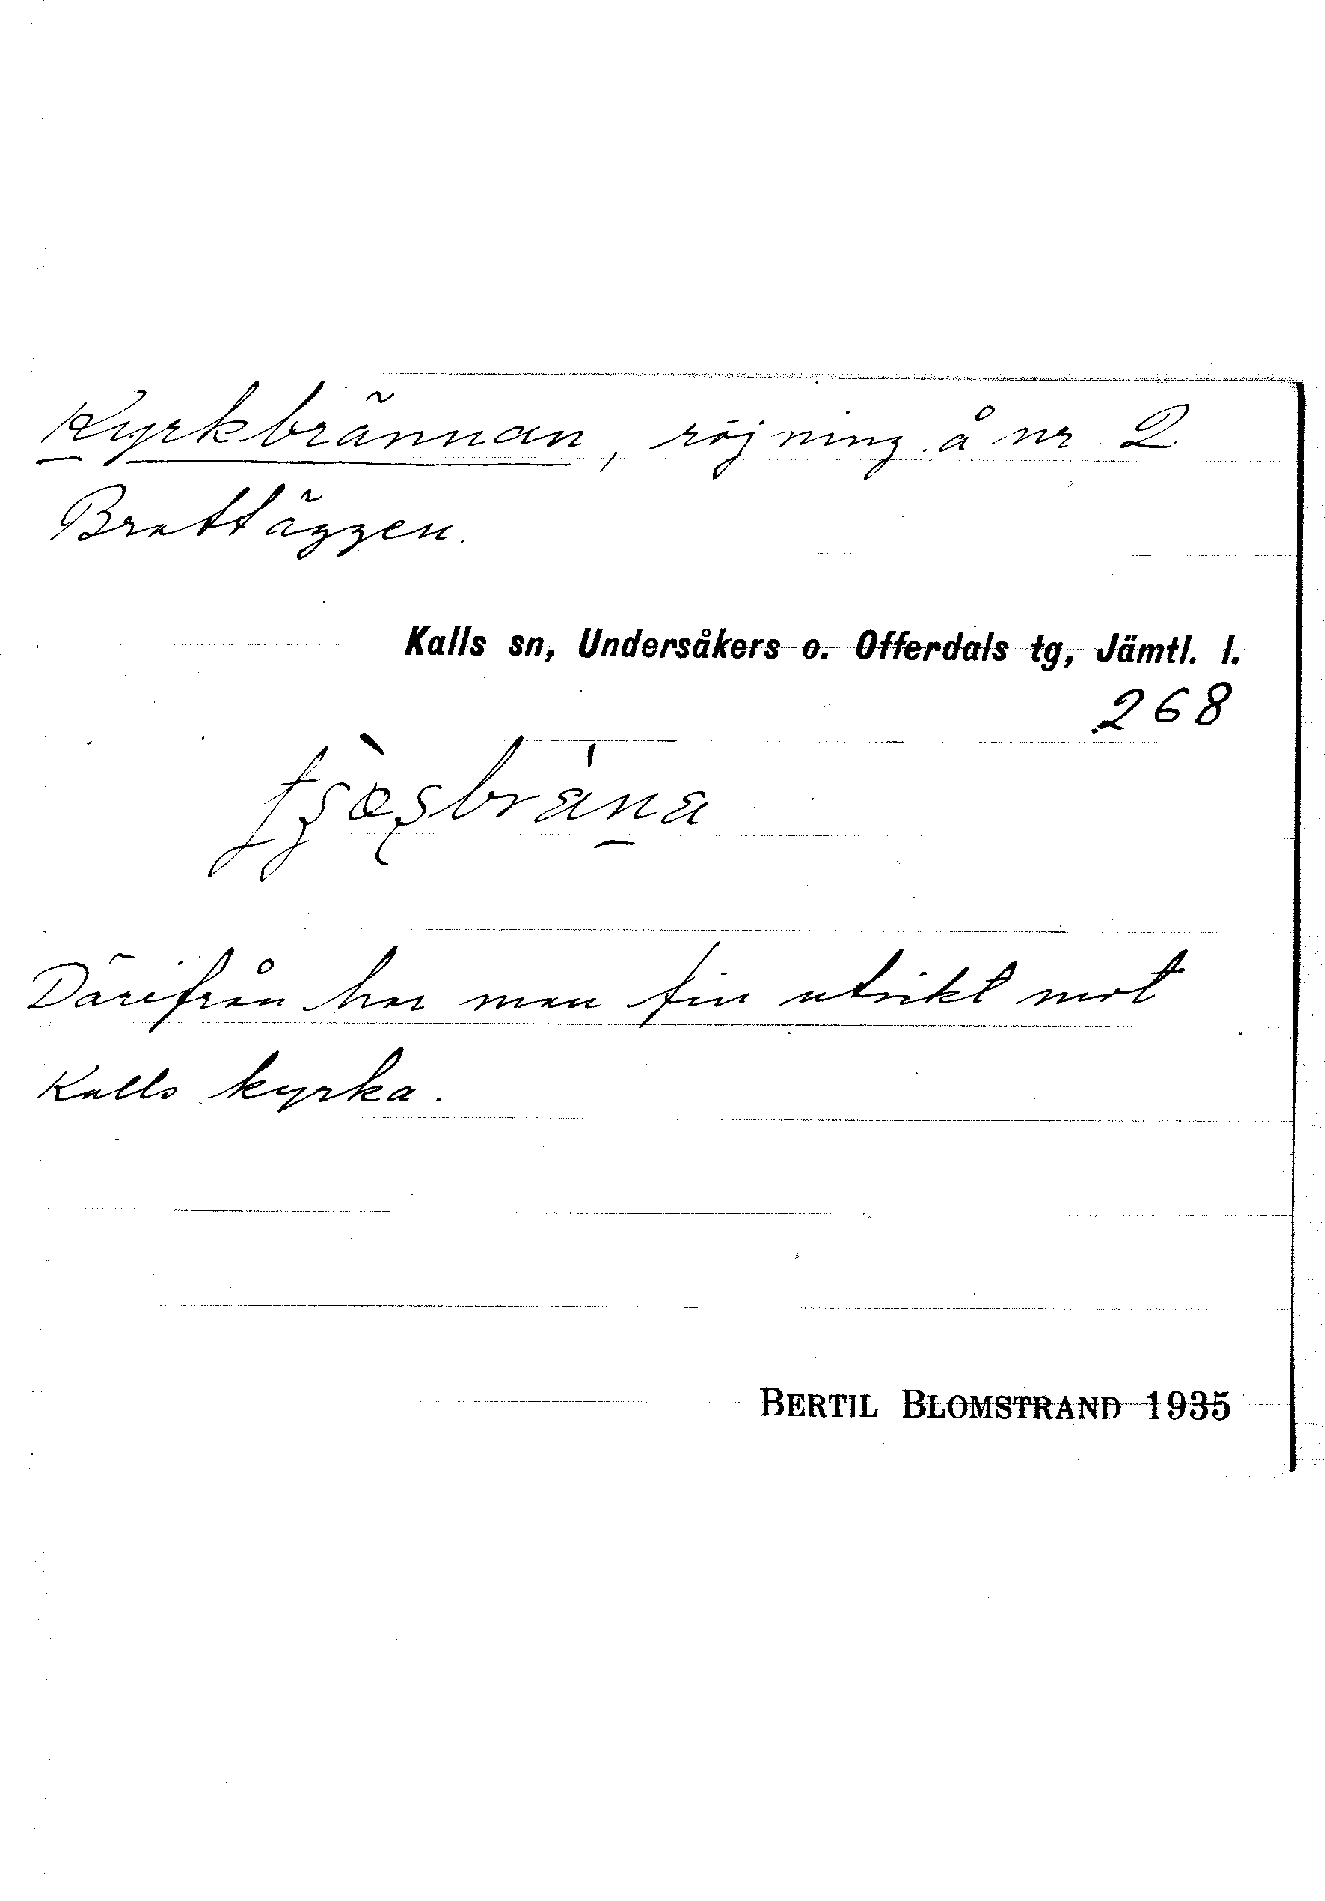 Kyrkbrännan, röjning å nr 2
Brattäggen.
Kalls sn, Undersåkers o. Offerdals tg, Jämtl. l.
268
Därifrån har man fin utsikt mot
Kalls kyrka.
BERTIL BLOMSTRAND 1935